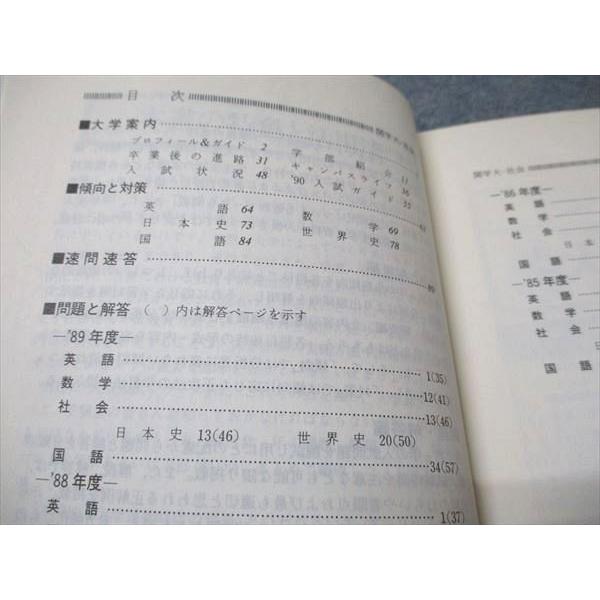 目 次
■大学案内
プロフィール&ガイド 2 学部紹介 11
卒業後の進路 31 キャンパスライフ 36
入試状況 48 '90入試ガイド 55
■傾向と対策
英語 64 数学 69
日本史 73 世界史 78
国語 84
■速問速答
■問題と解答 ( )内は解答ページを示す
—'89年度—
英語 1(35)
数学 12(41)
社会 13(46)
日本史 13(46) 世界史 20(50)
国語 34(57)
—'88年度—
英語 1(37)
関学大-社会
—'86年度—
英語
数学
社会
日
国語
—'85年度—
英語
数学
社会
国語